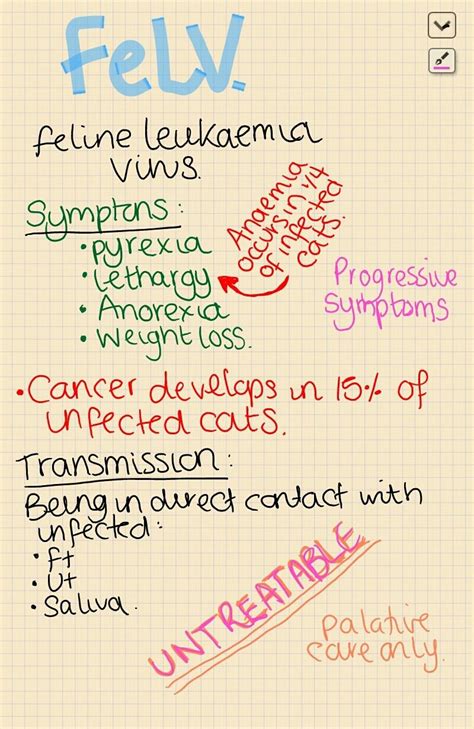 FeLV.
feline leukaemia
virus.
Symptons:
• pyrexia
• Lethargy
• Anorexia
• Weight loss.
Anaemia
occurs in 1/4
of infected
cats.
Progressive
symptoms
• Cancer develops in 15% of
infected cats.
Transmission:
Being in direct contact with
infected:
• f+
• U+
• Saliva.
UNTREATABLE
palative
care only.